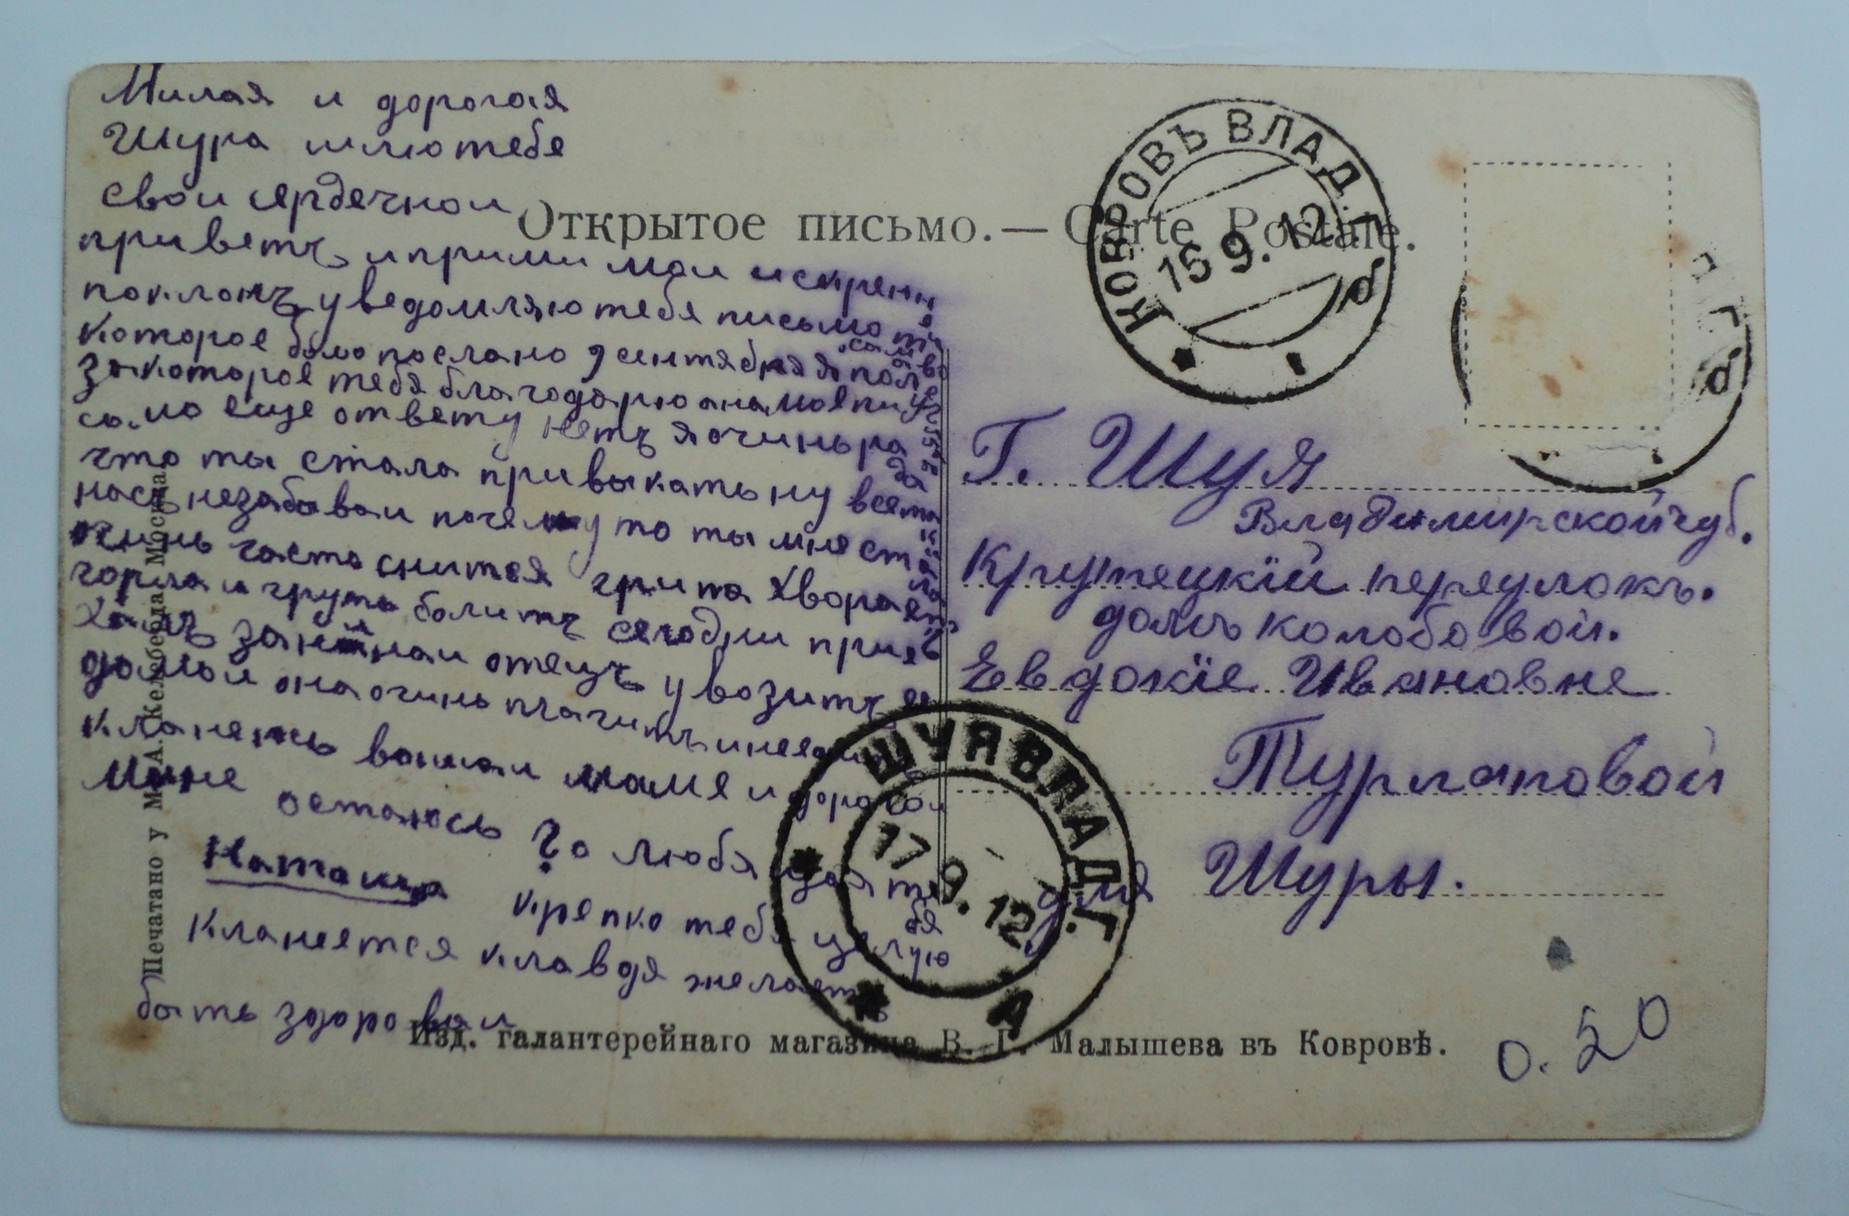 Милая и дорогая
Шура шлю тебе
свои сердечной
приветъ и прими мои искренн
поклонъ уведомляю тебе письмо
которое было послано 9 сентября я пол
за которое тебя благодарю она мое пи
само еще ответу нетъ я очинь рада
что ты стала привыкать ну все
насъ незабывай почему то ты мне ста
очинь часто снится грипа хворает
горла и грудь болитъ сегодни прие
халъ за отецъ увозитъ ее
домой она очинь плачитъ
кланеюсь вашай маме и дорогой
Мине
остаюсь любящая тебя
Наташа крепко тебя целую
Кланеется клавдя желаетъ
быть здоровай
Открытое письмо. — Carte Postale.
КОВРОВЪ ВЛАД. Г.
15 9. 12
г. Шуя
Владимирской губ.
Крутецкій переулокъ.
домъ колобовой.
Евдокіе Ивановне
Турлаповой
для Шуры.
ШУЯ ВЛАД. Г.
17 9. 12
А
Печатано у М. А. Келеберда, Москва.
Изд. галантерейнаго магазина В. Г. Малышева въ Ковровѣ.
0.50